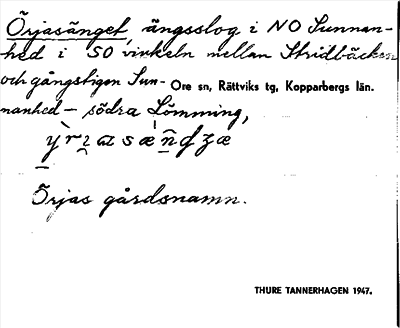 Örjasänget, ängsslog i NO Sunnan-
hed i SO vinkeln mellan Stridbäcken
och gångstigen Sun- Ore sn, Rättviks tg, Kopparbergs län.
nanhed – södra Lömming,
Örjas gårdsnamn.
THURE TANNERHAGEN 1947.